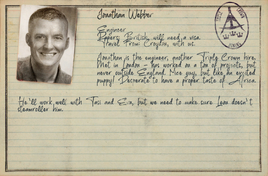 Jonathan Webber
Engineer
Papers: British, will need a visa
Travel: From Croydon, with us.
Jonathan is the engineer, another Triple Crown hire.
Met in London - has worked on a ton of projects, but
never outside England. Nice guy, but like an excited
puppy! Desperate to have a proper taste of Africa.
He'll work well with Tass and Em, but we need to make sure Leon doesn't
steamroller him.